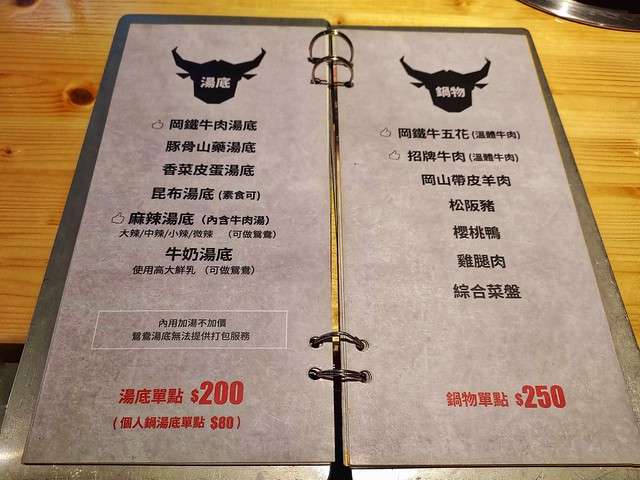 湯底
岡鐵牛肉湯底
豚骨山藥湯底
香菜皮蛋湯底
昆布湯底 (素食可)
麻辣湯底 (內含牛肉湯)
大辣/中辣/小辣/微辣 (可做鴛鴦)
牛奶湯底
使用高大鮮乳 (可做鴛鴦)
內用加湯不加價
鴛鴦湯底無法提供打包服務
湯底單點 $200
(個人鍋湯底單點 $80)
鍋物
岡鐵牛五花 (溫體牛肉)
招牌牛肉 (溫體牛肉)
岡山帶皮羊肉
松阪豬
櫻桃鴨
雞腿肉
綜合菜盤
鍋物單點 $250